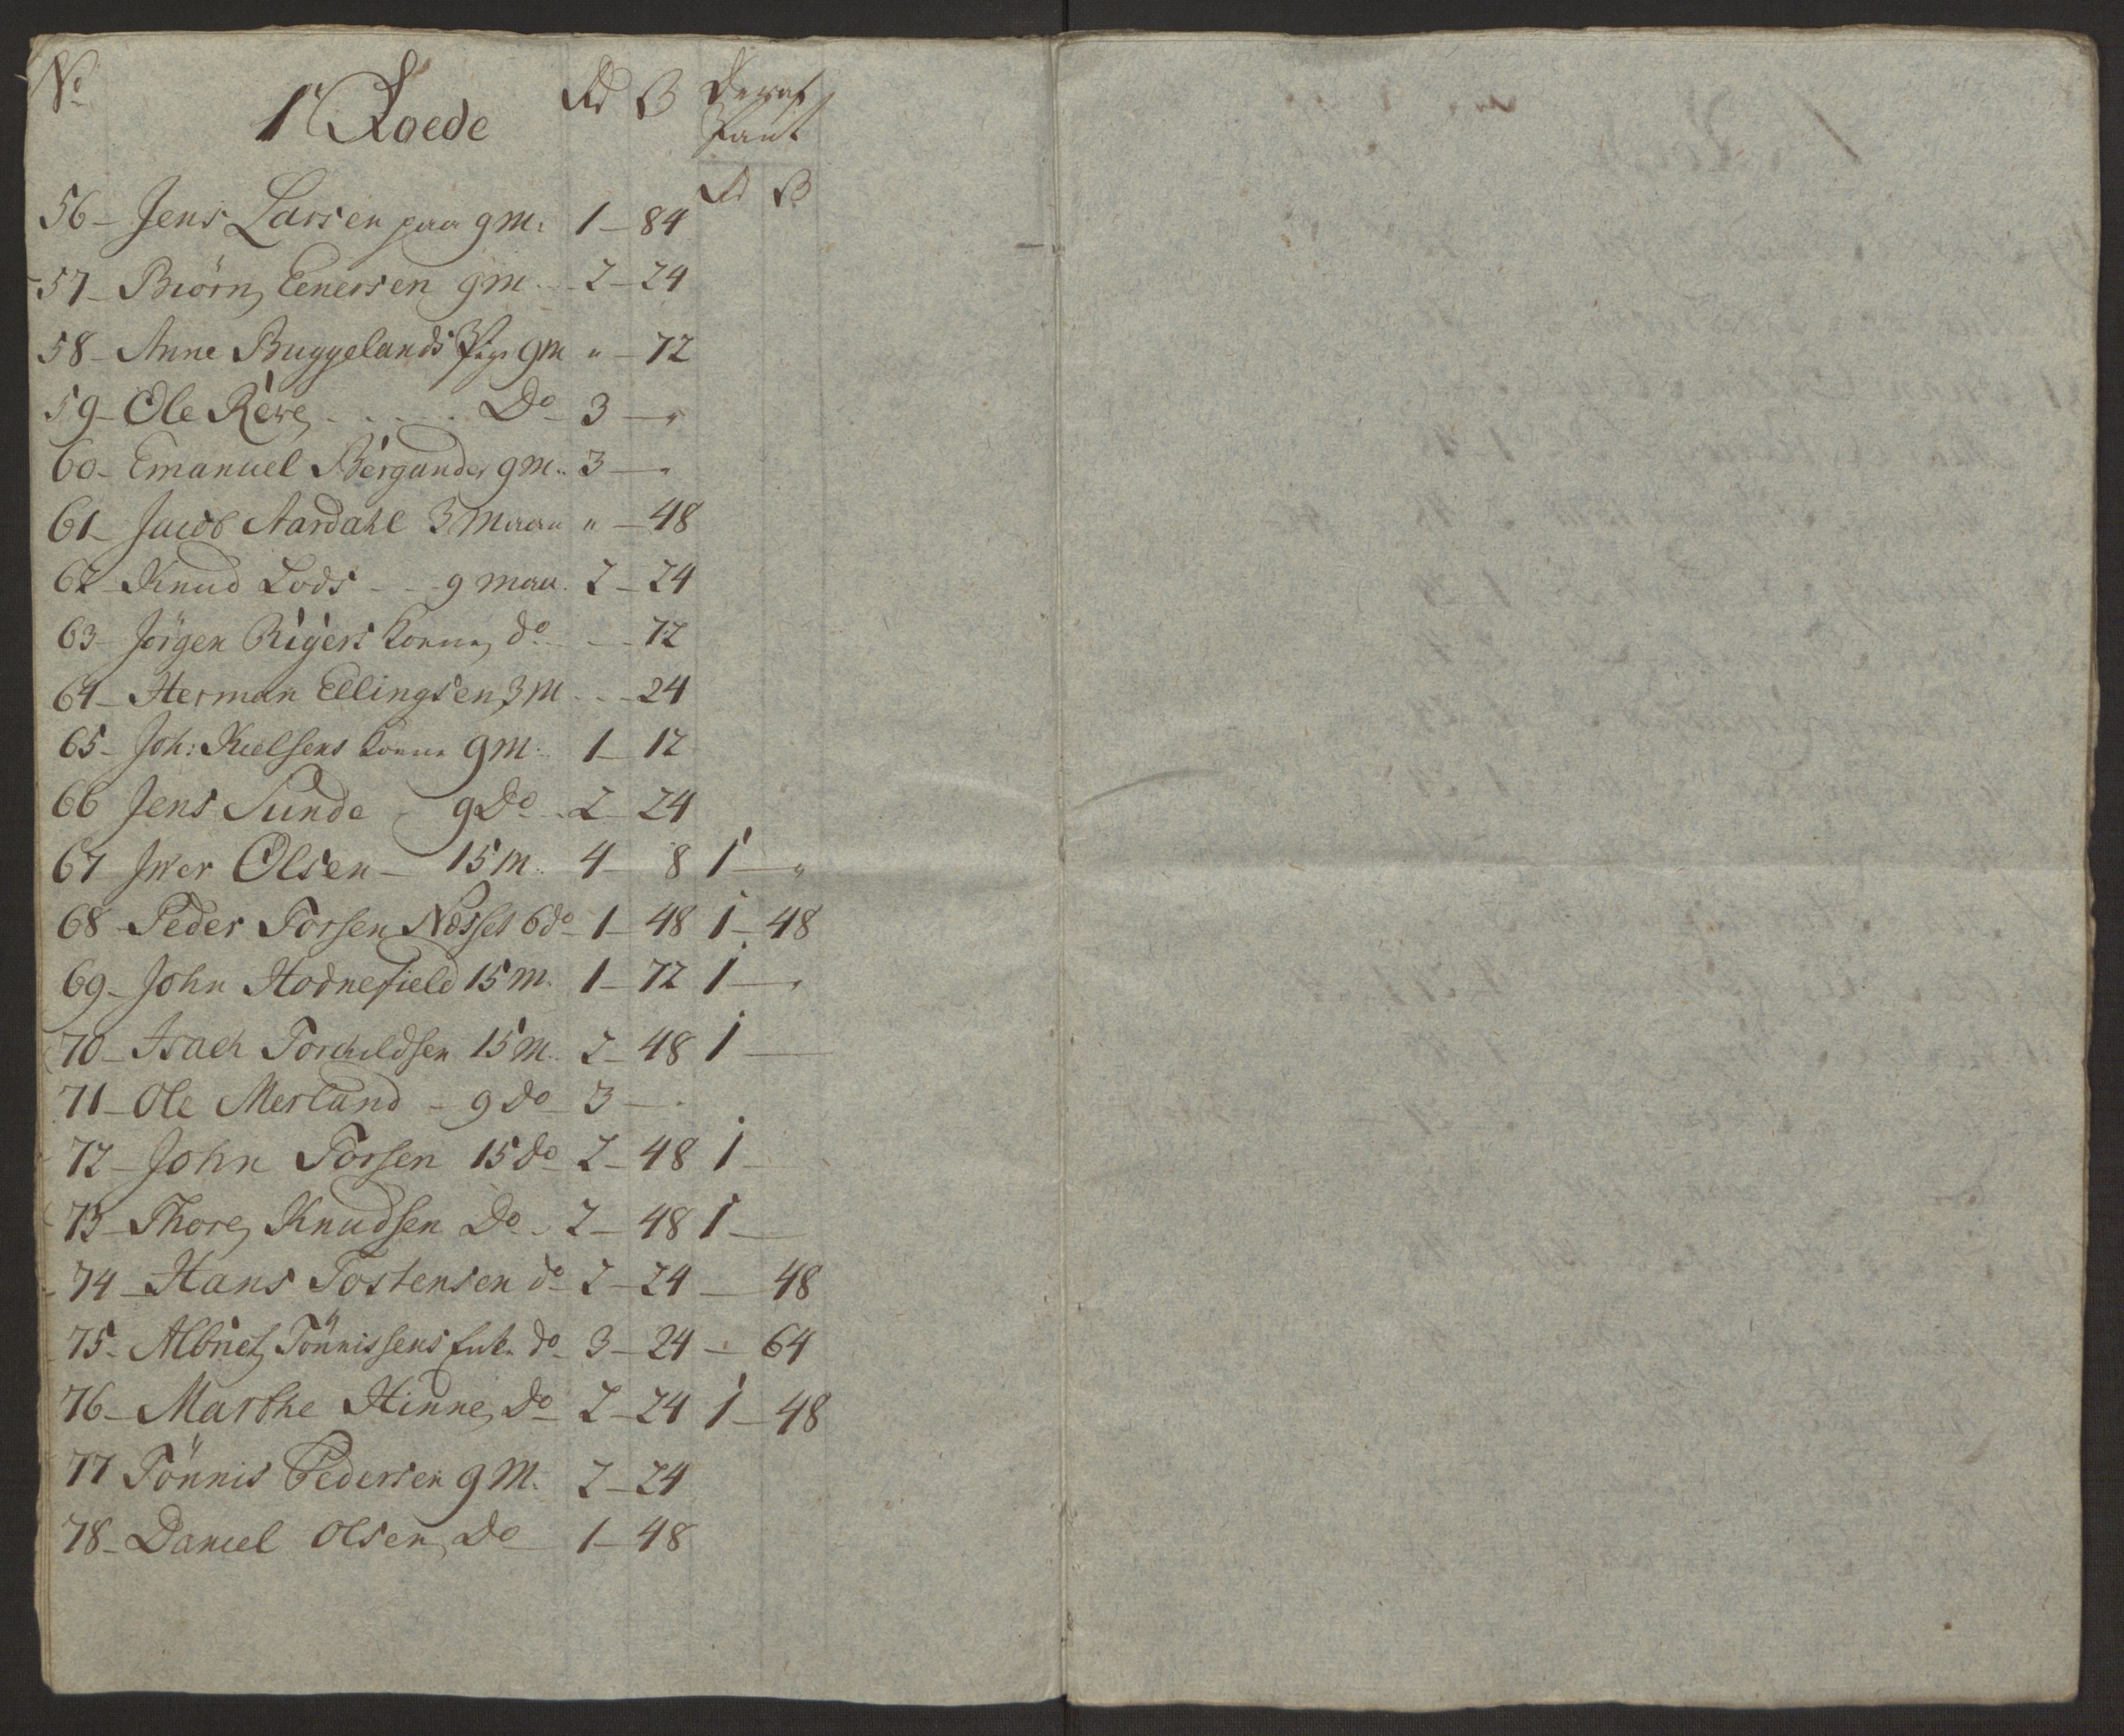 No
1 Roede
Rd ß
Deraf
Pant
Rd ß
56 - Jens Larsen paa 9 M: 1 - 84
57 - Biörn Eenersen 9 M. 2 - 24
58 - Anne Buggelands 9 M " - 72
59 - Ole Rewe . . . . . Do 3 - "
60 - Emanuel Bergander 9 M. 3 - "
61 - Jacob Aardahl 3 Maan " - 48
62 - Knud Lods - - 9 maa. 2 - 24
63 - Jörgen Rigers Konne do - - 72
64 - Herman Ellingsen 3 M - - 24
65 - Joh: Kielsens Konne 9 M: 1 - 12
66 Jens Sunde 9 Do - 2 - 24
67 - Iwer Olsen - 15 M. 4 - 8 1 - "
68 - Peder Torsen Nesset 6 do - 1 - 48 1 - 48
69 - John Hodnefield 15 M. 1 - 72 1 - "
70 - Isach Torchildsen 15 M. 2 - 48 1 -
71 - Ole Merland - 9 do - 3 - .
72 - John Torsen 15 do - 2 - 48 1 -
73 - Thore Knudsen Do . 2 - 48 1 -
74 - Hans Tostensen do - 2 - 24 - 48
75 - Albret Tönnissens Enk. do - 3 - 24 - 64
76 - Marthe Hinne Do - 2 - 24 1 - 48
77 Tönnis Pedersen 9 M. 2 - 24
78 - Daniel Olsen Do - 1 - 48